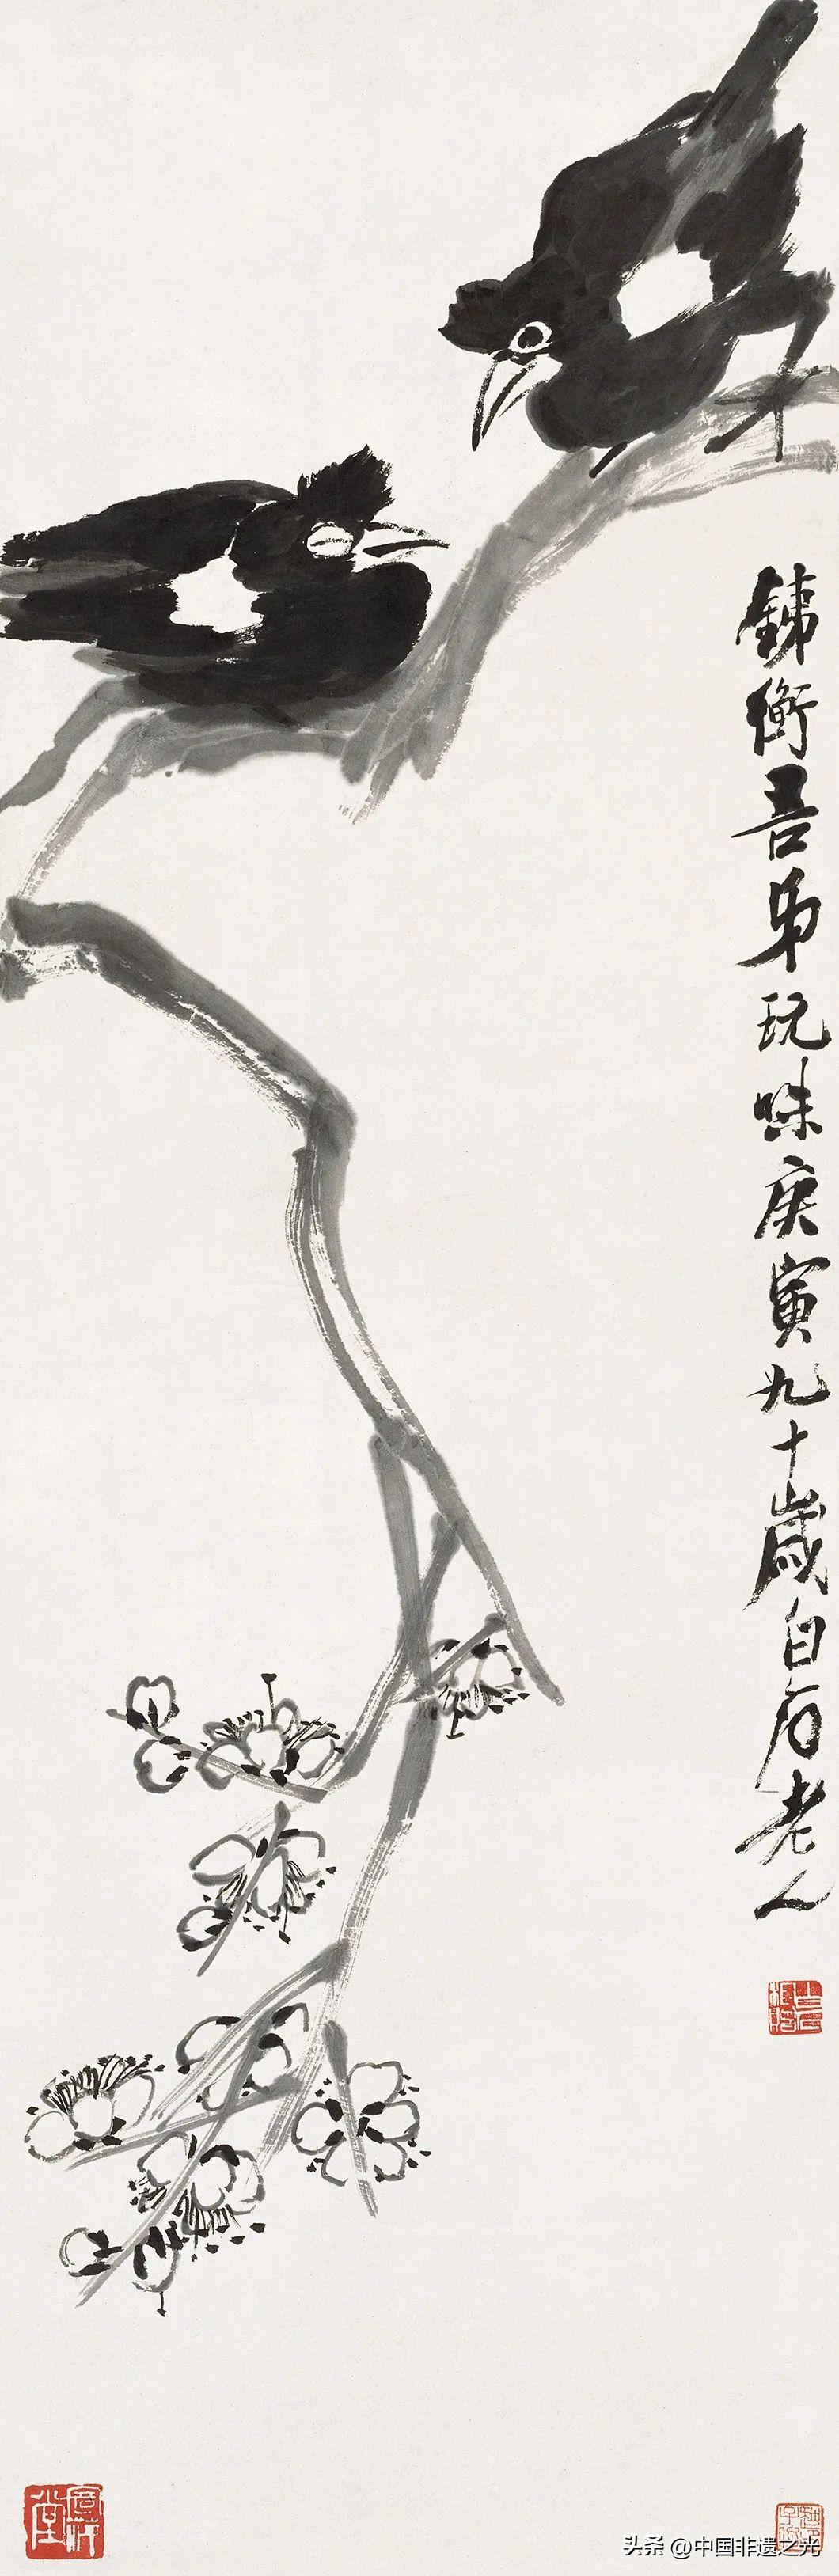 銕衡吾弟玩味庚寅九十歲白石老人
寄萍堂
头条 @中国非遗之光